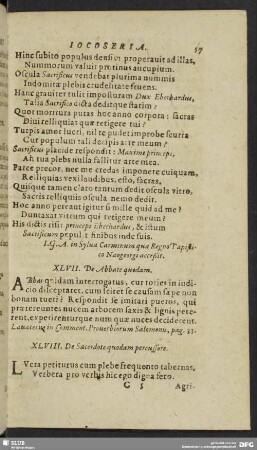 IOCOSERIA. 57
Hinc subito populus densim properavit ad illas,
Nummorum valuit protinus aucupium.
Oscula Sacrificus vendebat plurima nummis
Indomita plebis crudelitate fruens.
Hanc graviter tulit imposturam Dux Eberhardus,
Talia Sacrifico dicta deditque statim?
Quot morritura putas hoc anno corpora: sacras
Divi relliquias quæ retigere tui?
Turpis amor lucri, nil te pudet improbe scurra
Cur populum tali decipis arte meum?
Sacrificus placide respondit: Maxime princeps,
Ah tua plebs nulla fallitur arte mea.
Parce precor, nec me credas imponere cuiquam,
Relliquias vexi laudibus, esto, sacras,
Quisque tamen claro tantum dedit oscula vitro,
Sacris relliquiis oscula nemo dedit.
Hoc anno pereant igitur si mille quid ad me?
Duntaxat vitrum qui tetigere meum?
His dictis risit princeps Eberhardus, & istum
Sacrificum pepulit finibus inde suis.
I. G. A. in Sylva Carminum qua Regno Papisti-
co Naogeorgi accessit.
XLVII. De Abbate quodam.
Abbas quidam interrogatus, cur toties in iudi-
cio disceptaret, cum sciret se causam sæpe non
bonam tueri? Respondit se imitari pueros, qui
prætereuntes nucem arborem saxis & lignis pete-
rent, experirenturque num quæ nuces deciderent.
Lavaterus in Comment. Proverbiorum Salomonis, pag. 23.
XLVIII. De Sacerdote quodam percussore.
Lucra petiturus cum plebe frequento tabernas,
Verbera pro verbis hic ego digna fero.
G 5 Agri-